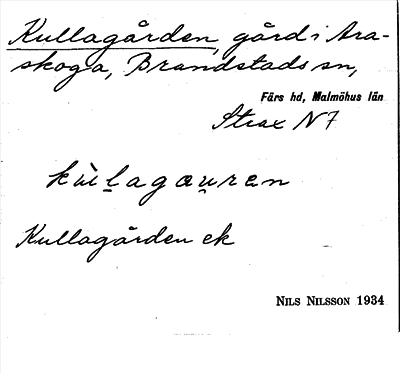 Kullagården, gård i Ara-
skoga, Brandstads sn,
Färs hd, Malmöhus län
Strax N 7
kùl̠agau̯ren
Kullagården ek
NILS NILSSON 1934